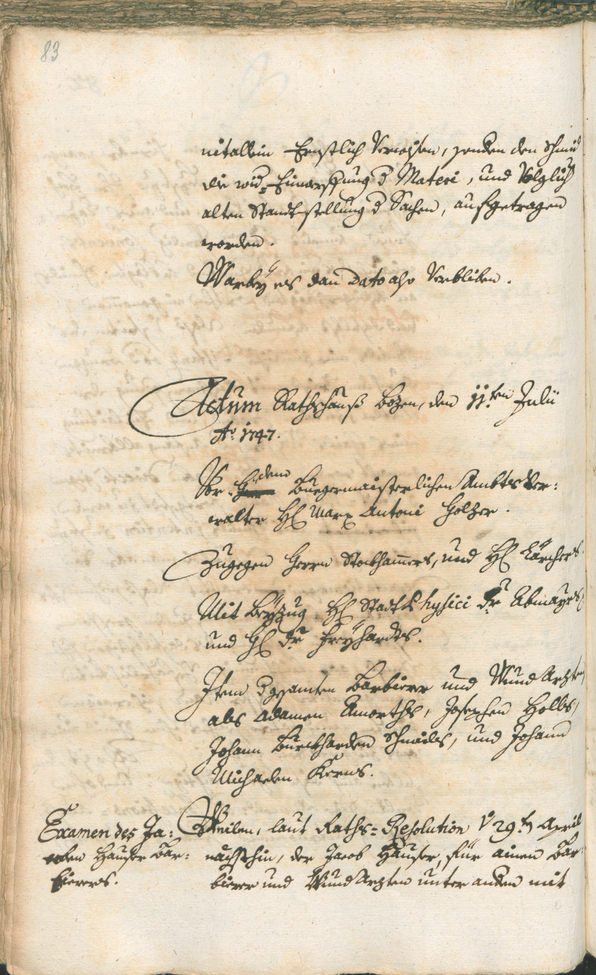 83
nitallein Ernstlich Verwisen, sonden den Schmid
die wid.-Einmachung d Materi, und Volglich
alten Standtstellung d Sachen, aufgetragen
worden.
Warbey es dan Dato also Verbliben.
Actum Rathshauß Bozen, den 11.ten Julii
Ao. 1747.
Vor dem Burgermaisterlichen Ambtsver:
walter H Marx Antoni Holzer.
Zugegen Herrn Stockhamers, und H Kärchers
Mit Beyzug H Statt Physici Dr Abmayrs
und H Dr Freyhardts.
Item d gsamten Barbierer und Wund Arzten
als Adamen Amorths, Josephen Holls,
Johann Burckharden Schmidls, und Johann
Michaelen Kerns.
Examen des Ja:
coben Hauser Bar:
bierers.
Weilen, laut Raths-Resolution v 29.t April
nächsthin, der Jacob Hauser, für ainen Bar:
bierer und Wund Arzten unter andern mit